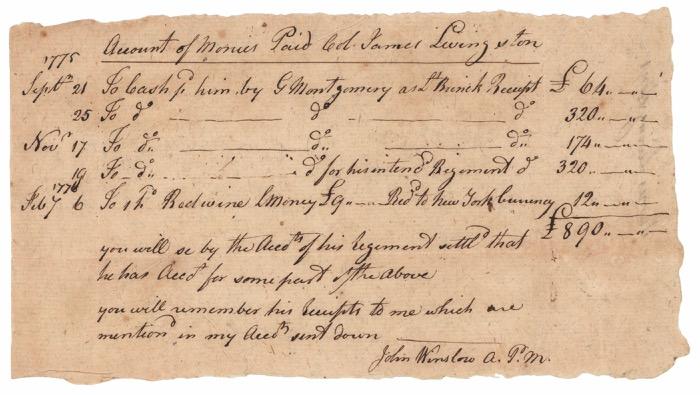 Account of Monies Paid Col. James Livingston
1775
Septr. 21 To Cash pd. him by G Montgomery as pr Receipt £ 64 „ — „ —
25 To do. do. do. 320 „ — „ —
Novr 17 To do. do. do. 174 „ — „ —
19 To do. do. for his intend'd Regiment do 320 „ — „ —
1776
Feby 6 To Red wine LMoney £9 „ — „ — Red'd to New York Currency 12 „ — „ —
£890 „ — „ —
you will se by the Accots of his Regiment settl'd that
he has Accod for some part of the above
you will remember his Receipts to me which are
mention'd in my Accots sent down
John Winslow A. P. M.